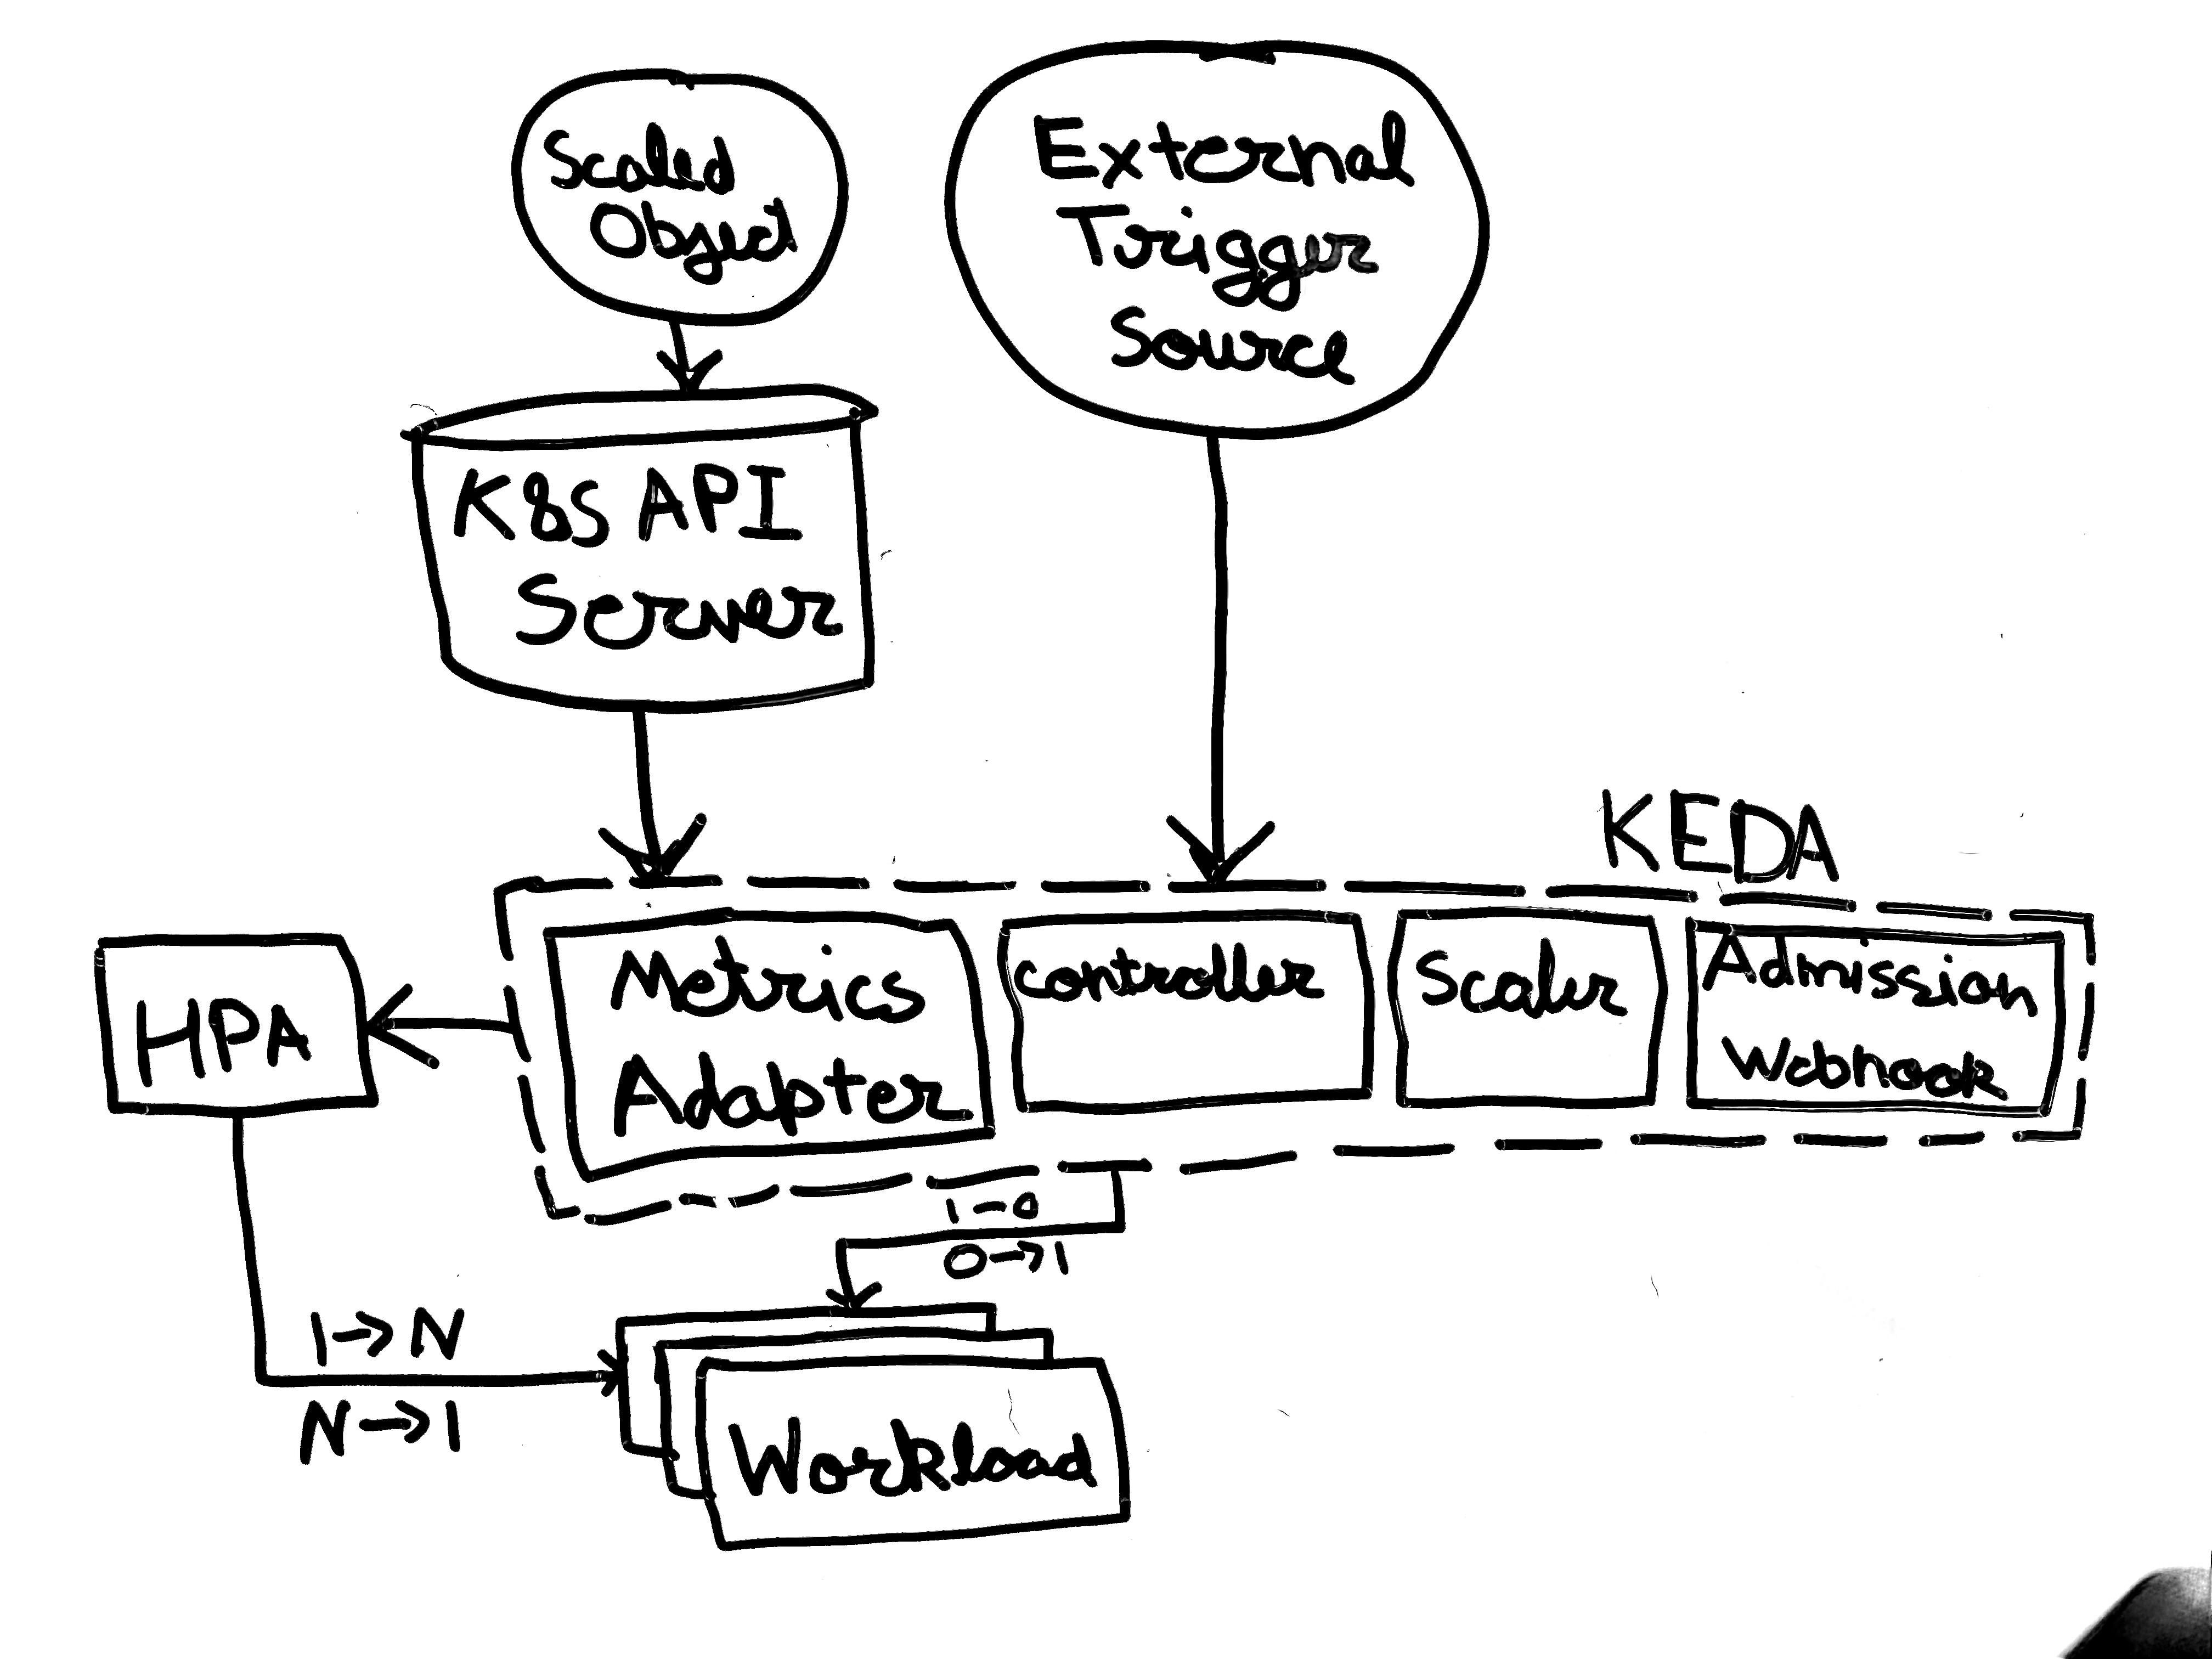 Scaled
Object
External
Trigger
Source
K8S API
Server
KEDA
Metrics
Adapter
controller
Scaler
Admission
Webhook
HPA
1-0
0→1
1→N
N→1
Workload